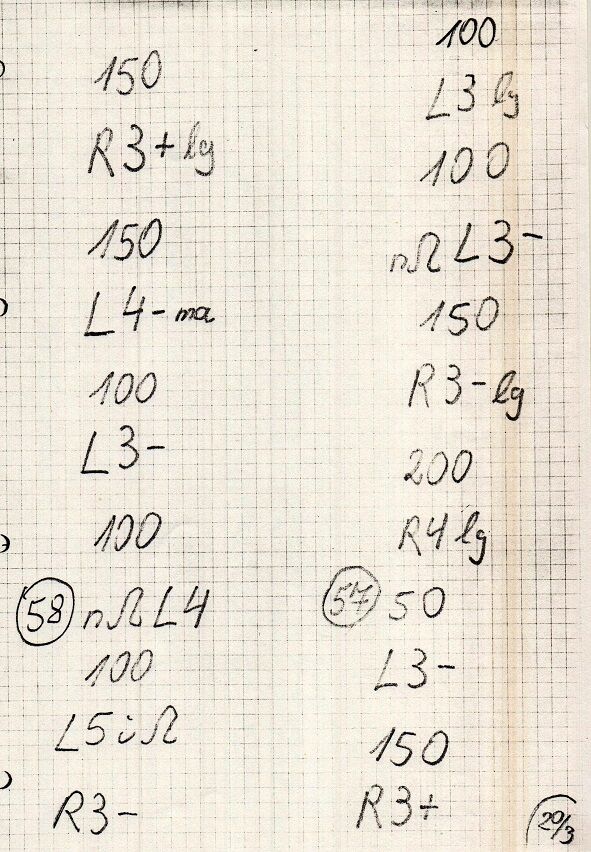 150
R3+ lg
150
L4- ma
100
L3-
100
58 nΩ L4
100
L5 i Ω
R3-
100
L3 lg
100
nΩ L3-
150
R3- lg
200
R4 lg
57 50
L3-
150
R3+
20/3